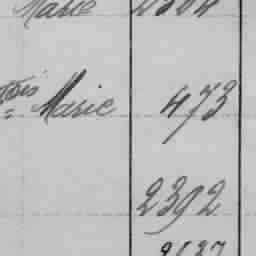 Marie 2304
Marie 473
2392
2637